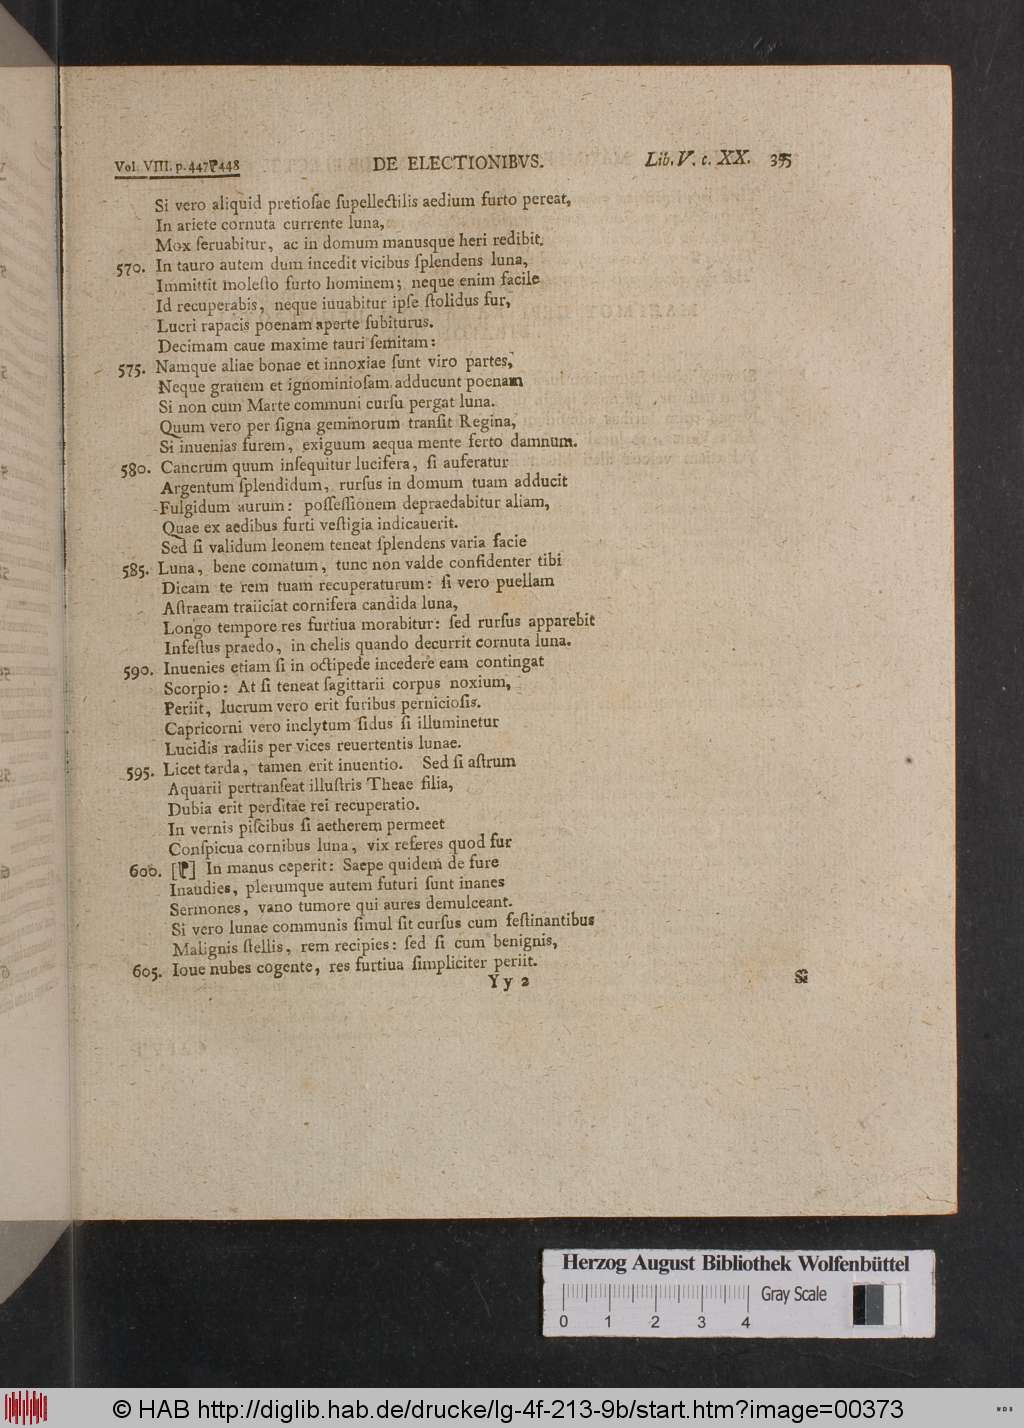 Vol. VIII. p. 447 ℙ 448 DE ELECTIONIBVS. Lib. V. c. XX. 355
Si vero aliquid pretioſae ſupellectilis aedium furto pereat,
In ariete cornuta currente luna,
Mox ſeruabitur, ac in domum manusque heri redibit.
570. In tauro autem dum incedit vicibus ſplendens luna,
Immittit moleſto furto hominem; neque enim facile
Id recuperabis, neque iuuabitur ipſe ſtolidus fur,
Lucri rapacis poenam aperte ſubiturus.
Decimam caue maxime tauri ſemitam:
575. Namque aliae bonae et innoxiae ſunt viro partes,
Neque grauem et ignominioſam adducunt poenam
Si non cum Marte communi curſu pergat luna.
Quum vero per ſigna geminorum tranſit Regina,
Si inuenias furem, exiguum aequa mente ferto damnum.
580. Cancrum quum inſequitur lucifera, ſi auferatur
Argentum ſplendidum, rurſus in domum tuam adducit
Fulgidum aurum: poſſeſſionem depraedabitur aliam,
Quae ex aedibus furti veſtigia indicauerit.
Sed ſi validum leonem teneat ſplendens varia facie
585. Luna, bene comatum, tunc non valde confidenter tibi
Dicam te rem tuam recuperaturum: ſi vero puellam
Aſtraeam traiiciat cornifera candida luna,
Longo tempore res furtiua morabitur: ſed rurſus apparebit
Infeſtus praedo, in chelis quando decurrit cornuta luna.
590. Inuenies etiam ſi in octipede incedere eam contingat
Scorpio: At ſi teneat ſagittarii corpus noxium,
Periit, lucrum vero erit furibus pernicioſis.
Capricorni vero inclytum ſidus ſi illuminetur
Lucidis radiis per vices reuertentis lunae.
595. Licet tarda, tamen erit inuentio. Sed ſi aſtrum
Aquarii pertranſeat illuſtris Theae filia,
Dubia erit perditae rei recuperatio.
In vernis piſcibus ſi aetherem permeet
Conſpicua cornibus luna, vix referes quod fur
600. [ℙ] In manus ceperit: Saepe quidem de fure
Inaudies, plerumque autem futuri ſunt inanes
Sermones, vano tumore qui aures demulceant.
Si vero lunae communis ſimul ſit curſus cum feſtinantibus
Malignis ſtellis, rem recipies: ſed ſi cum benignis,
605. Ioue nubes cogente, res furtiua ſimpliciter periit.
Y y 2 Si
Herzog August Bibliothek Wolfenbüttel
Gray Scale
0 1 2 3 4
© HAB http://diglib.hab.de/drucke/lg-4f-213-9b/start.htm?image=00373